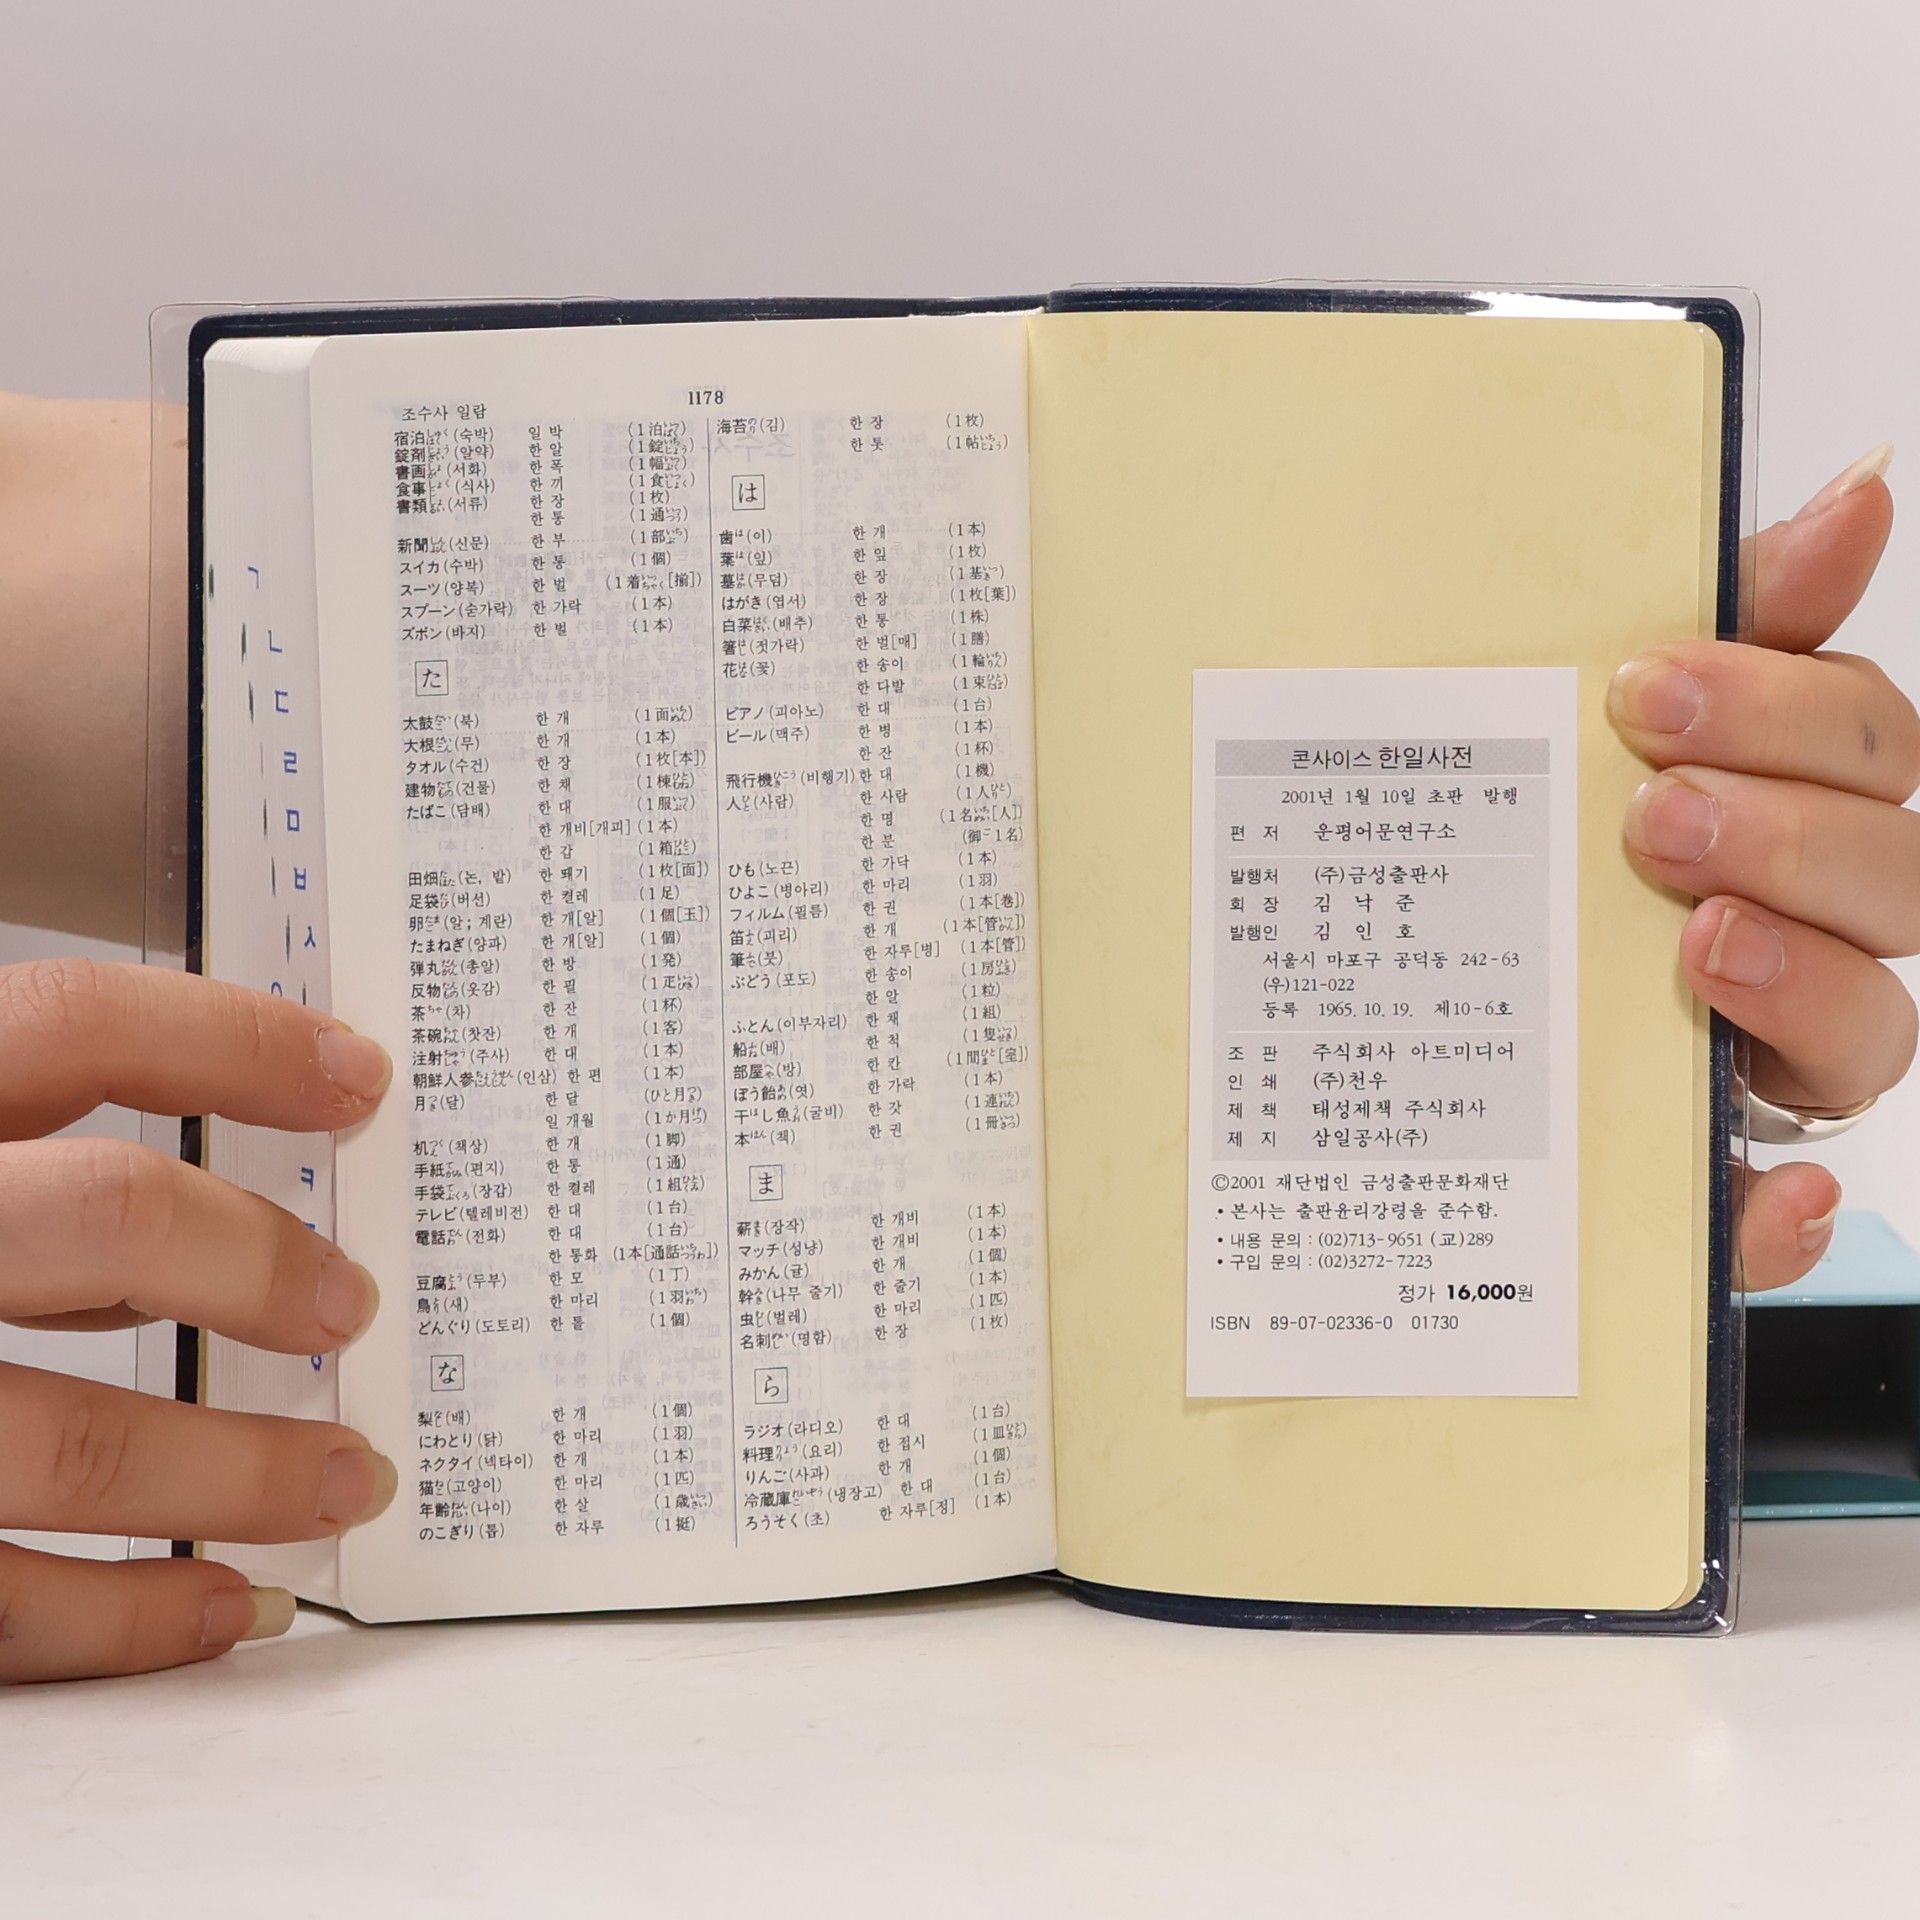 1178
조수사 일람
宿泊(숙박) 일 박 (1泊)
錠剤(알약) 한 알 (1錠)
書画(서화) 한 폭 (1幅)
食事(식사) 한 끼 (1食)
書類(서류) 한 장 (1枚)
한 통 (1通)
新聞(신문) 한 부 (1部)
スイカ(수박) 한 통 (1個)
スーツ(양복) 한 벌 (1着[揃])
スプーン(숟가락) 한 가락 (1本)
ズボン(바지) 한 벌 (1本)
た
太鼓(북) 한 개 (1面)
大根(무) 한 개 (1本)
タオル(수건) 한 장 (1枚[本])
建物(건물) 한 채 (1棟)
たばこ(담배) 한 대 (1服)
한 개비[개피] (1本)
한 갑 (1箱)
田畑(논, 밭) 한 뙈기 (1枚[面])
足袋(버선) 한 켤레 (1足)
卵(알; 계란) 한 개[알] (1個[玉])
たまねぎ(양파) 한 개[알] (1個)
弾丸(총알) 한 방 (1発)
反物(옷감) 한 필 (1疋)
茶(차) 한 잔 (1杯)
茶碗(찻잔) 한 개 (1客)
注射(주사) 한 대 (1本)
朝鮮人参(인삼) 한 편 (1本)
月(달) 한 달 (ひと月)
일 개월 (1か月)
机(책상) 한 개 (1脚)
手紙(편지) 한 통 (1通)
手袋(장갑) 한 켤레 (1組)
テレビ(텔레비전) 한 대 (1台)
電話(전화) 한 대 (1台)
한 통화 (1本[通話])
豆腐(두부) 한 모 (1丁)
鳥(새) 한 마리 (1羽)
どんぐり(도토리) 한 톨 (1個)
な
梨(배) 한 개 (1個)
にわとり(닭) 한 마리 (1羽)
ネクタイ(넥타이) 한 개 (1本)
猫(고양이) 한 마리 (1匹)
年齢(나이) 한 살 (1歳)
のこぎり(톱) 한 자루 (1挺)
海苔(김) 한 장 (1枚)
한 톳 (1帖)
は
歯(이) 한 개 (1本)
葉(잎) 한 잎 (1枚)
墓(무덤) 한 장 (1基)
はがき(엽서) 한 장 (1枚[葉])
白菜(배추) 한 통 (1株)
箸(젓가락) 한 벌[매] (1膳)
花(꽃) 한 송이 (1輪)
한 다발 (1束)
ピアノ(피아노) 한 대 (1台)
ビール(맥주) 한 병 (1本)
한 잔 (1杯)
飛行機(비행기) 한 대 (1機)
人(사람) 한 사람 (1人)
한 명 (1名[人])
한 분 (御1名)
ひも(노끈) 한 가닥 (1本)
ひよこ(병아리) 한 마리 (1羽)
フィルム(필름) 한 권 (1本[巻])
笛(피리) 한 개 (1本[管])
筆(붓) 한 자루[병] (1本[管])
ぶどう(포도) 한 송이 (1房)
한 알 (1粒)
ふとん(이부자리) 한 채 (1組)
船(배) 한 척 (1隻)
部屋(방) 한 칸 (1間[室])
ぼう飴(엿) 한 가락 (1本)
干し魚(굴비) 한 갓 (1連)
本(책) 한 권 (1冊)
ま
薪(장작) 한 개비 (1本)
マッチ(성냥) 한 개비 (1本)
みかん(귤) 한 개 (1個)
幹(나무 줄기) 한 줄기 (1本)
虫(벌레) 한 마리 (1匹)
名刺(명함) 한 장 (1枚)
ら
ラジオ(라디오) 한 대 (1台)
料理(요리) 한 접시 (1皿)
りんご(사과) 한 개 (1個)
冷蔵庫(냉장고) 한 대 (1台)
ろうそく(초) 한 자루[정] (1本)
ㄱ
ㄴ
ㄷ
ㄹ
ㅁ
ㅂ
ㅅ
ㅋ
콘사이스 한일사전
2001년 1월 10일 초판 발행
편 저 운평어문연구소
발행처 (주)금성출판사
회 장 김 낙 준
발행인 김 인 호
서울시 마포구 공덕동 242-63
(우)121-022
등록 1965. 10. 19. 제10-6호
조 판 주식회사 아트미디어
인 쇄 (주)천우
제 책 태성제책 주식회사
제 지 삼일공사(주)
©2001 재단법인 금성출판문화재단
• 본사는 출판윤리강령을 준수함.
• 내용 문의 : (02)713-9651 (교)289
• 구입 문의 : (02)3272-7223
정가 16,000원
ISBN 89-07-02336-0 01730